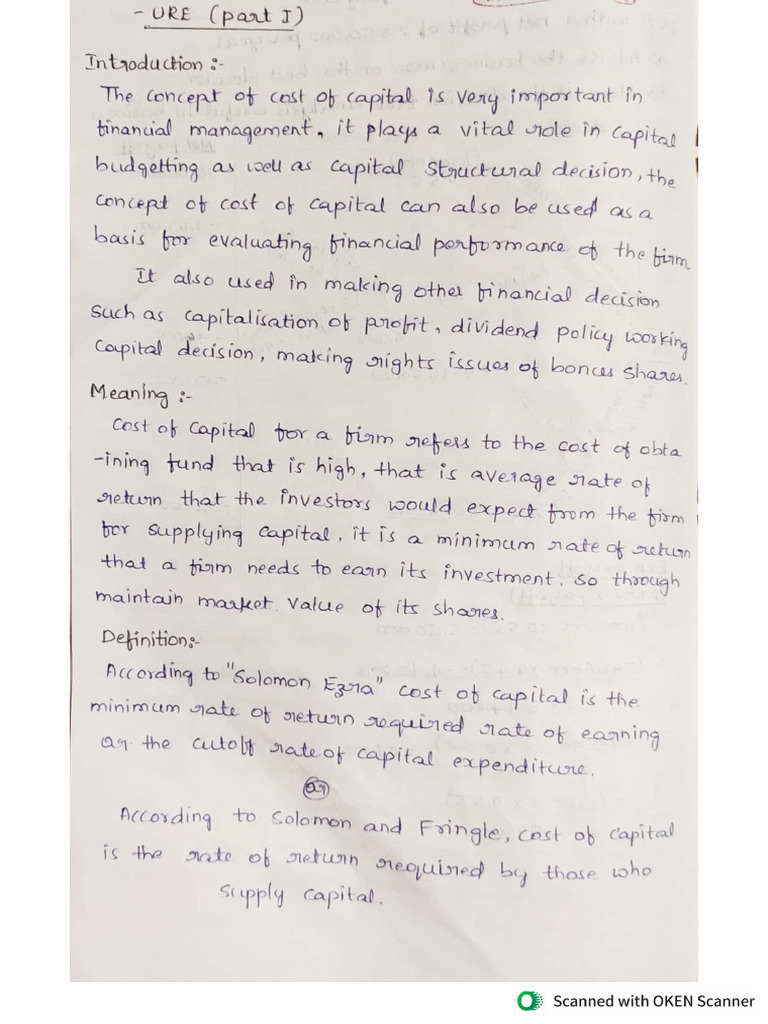 - URE (part I)
Introduction :-
The concept of cost of capital is very important in
financial management, it plays a vital role in capital
budgetting as well as capital structural decision, the
concept of cost of capital can also be used as a
basis for evaluating financial performance of the firm
It also used in making other financial decision
such as capitalisation of profit, dividend policy working
capital decision, making rights issues of bonces shares.
Meaning :-
Cost of capital for a firm refers to the cost of obta
-ining fund that is high, that is average rate of
return that the investors would expect from the firm
for supplying capital, it is a minimum rate of return
that a firm needs to earn its investment. so through
maintain market value of its shares.
Definition:-
According to "Solomon Ezra" cost of capital is the
minimum rate of return required rate of earning
or the cutoff rate of capital expenditure.
or
According to Solomon and Fringle, cost of capital
is the rate of return required by those who
supply capital.
Scanned with OKEN Scanner